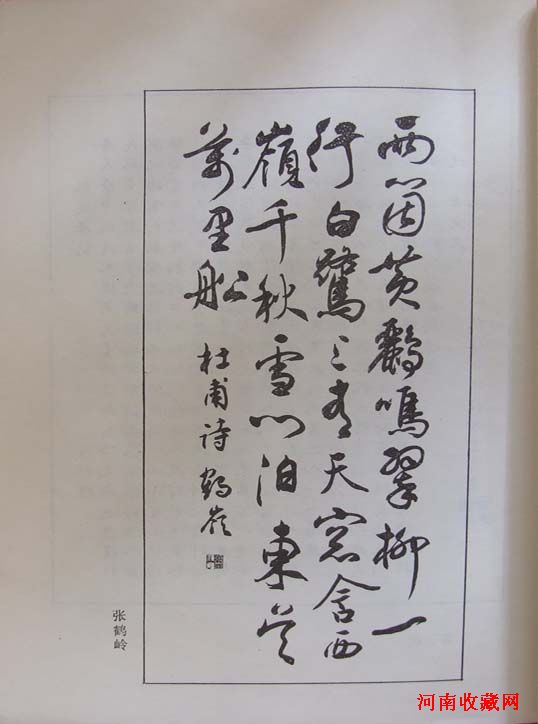 兩箇黃鸝鳴翠柳一
行白鷺上青天窓含西
嶺千秋雪門泊東吳
萬里船 杜甫詩 鶴嶺
张鹤岭
河南收藏网